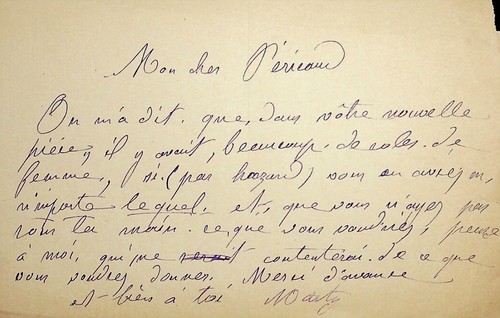 Mon cher Péricaud
On m'a dit. que, dans vôtre nouvelle
pièce, il y avait, beaucoup. de roles. de
femme, si. (par hazard) vous en aviez un,
n'importe lequel. et, que vous n'ayez pas
sous la main. ce que vous voudriez, pensez
à moi, qui me contenterai. de ce que
vous voudrez donner. Merci d'avance
et bien à toi Marty